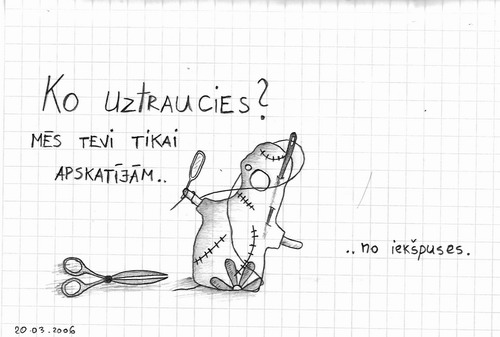 Ko uztraucies?
mēs tevi tikai
apskatījām..
..no iekšpuses.
20.03.2006